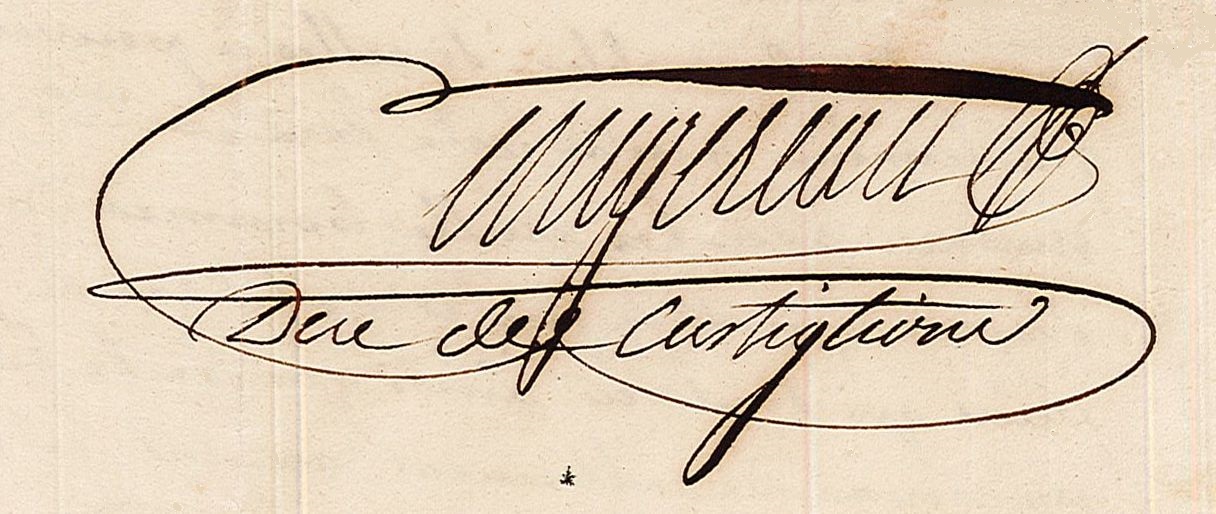 augereau
Duc de Castiglione